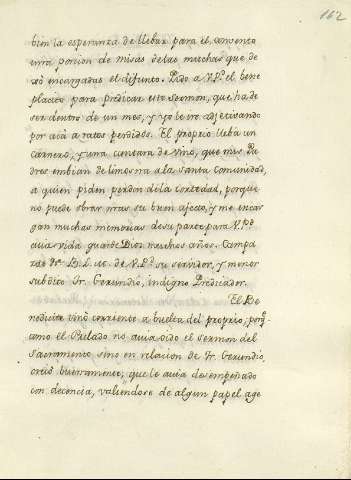 162
bien la esperanza de llebar para el convento
una porcion de misas de las muchas que de
xó encargadas el difunto. Pido a V. Pd. el bene
placito para predicar este sermon, que ha de
ser dentro de un mes, y yo le iré adjetivando
por acá a ratos perdidos. El proprio lleba un
carnero, y una cantara de vino, que mis Pa
dres embian de limosna a la santa Comunidad,
a quien piden perdon de la cortedad, porque
no puede obrar mas su buen afecto, y me encar
gan muchas memorias de su parte para V. Pd.
cuia vida guarde Dios muchos años. Campa
zas &c. B. L. M. de V. Pd. su servidor, y menor
subdito Fr. Gerundio, indigno Predicador.
El Be
nedicite vino corriente a buelta del proprio; porq.
como el Prelado no avia oido el sermon del
Sacramento sino en relacion de Fr. Gerundio,
creió buenamente, que le avia desempeñado
con decencia, valiendose de algun papel age